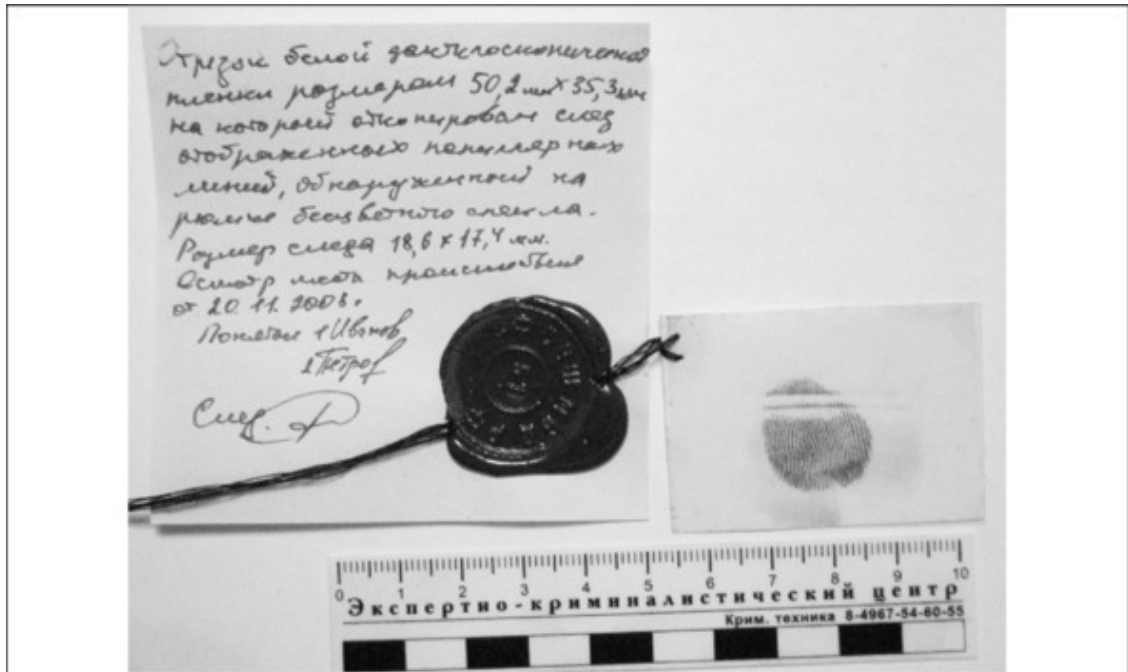 Отрезок белой дактилоскопической
пленки размером 50,2 мм х 35,3 мм
на которой откопирован след
отображенных папиллярных
линий, обнаруженный на
рюмке бесцветного стекла.
Размер следа 18,6 х 17,4 мм.
Осмотр места происшествия
от 20.11.2008.
Понятые 1 Иванов
2 Петров
След.
0 1 2 3 4 5 6 7 8 9 10
Экспертно-криминалистический центр
Крим. техника 8-4967-54-60-55